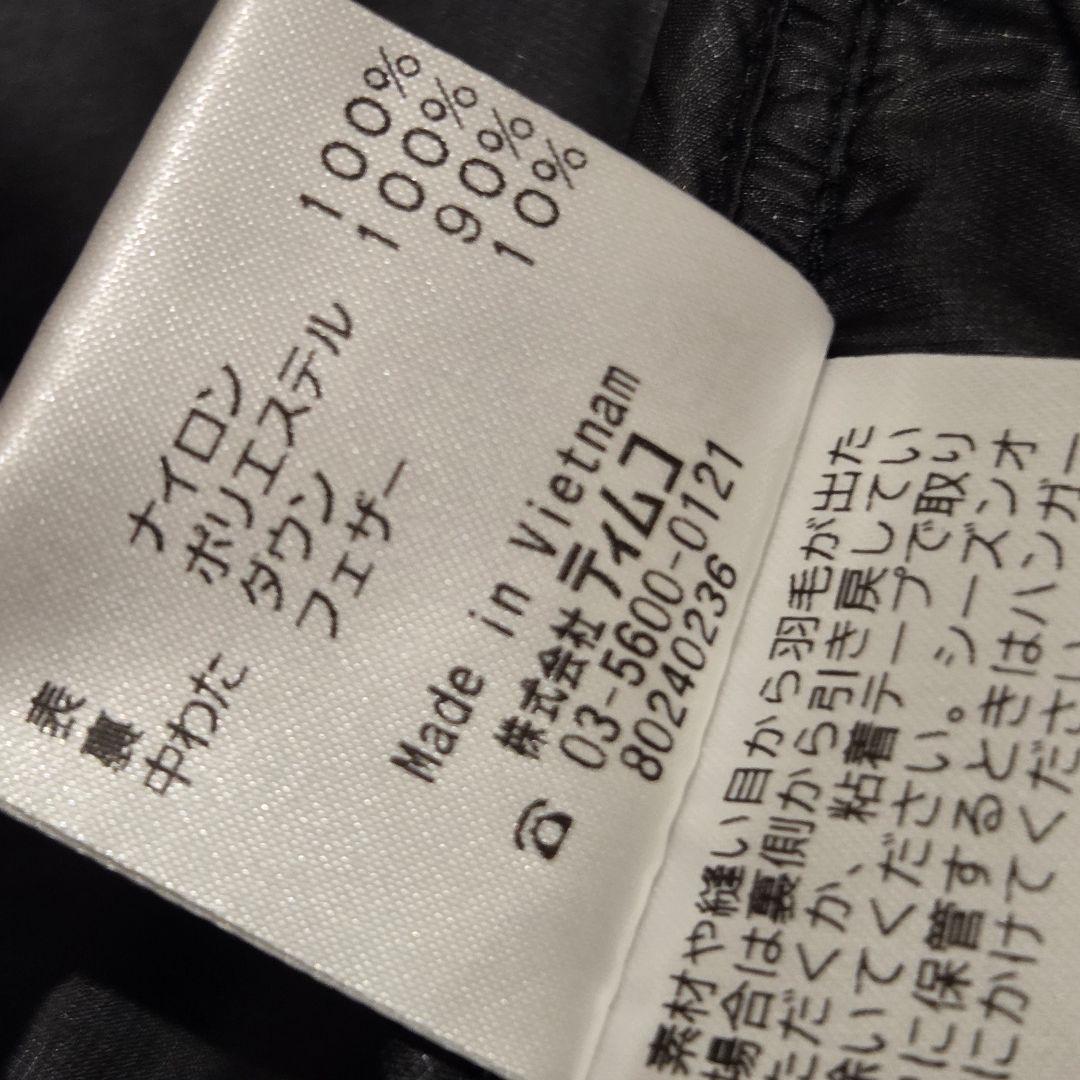 表 ナイロン 100%
裏 ポリエステル 100%
中わた ダウン 90%
フェザー 10%
Made in Vietnam
株式会社 ティムコ
☎ 03-5600-0121
80240236
素材や縫い目から羽毛が出た
場合は裏側から引き戻してい
ただくか、粘着テープで取り
除いてください。シーズンオ
に保管するときはハンガー
にかけてください